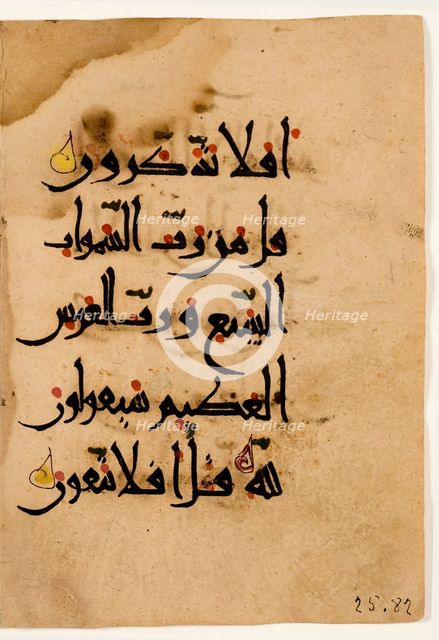 افلا تذكرون
قل من رب السموات
Heritage Heritage
السبع ورب العرش
Heritage Heritage
العظيم سيقولون
Heritage Heritage
لله قل افلا تتقون
25.82